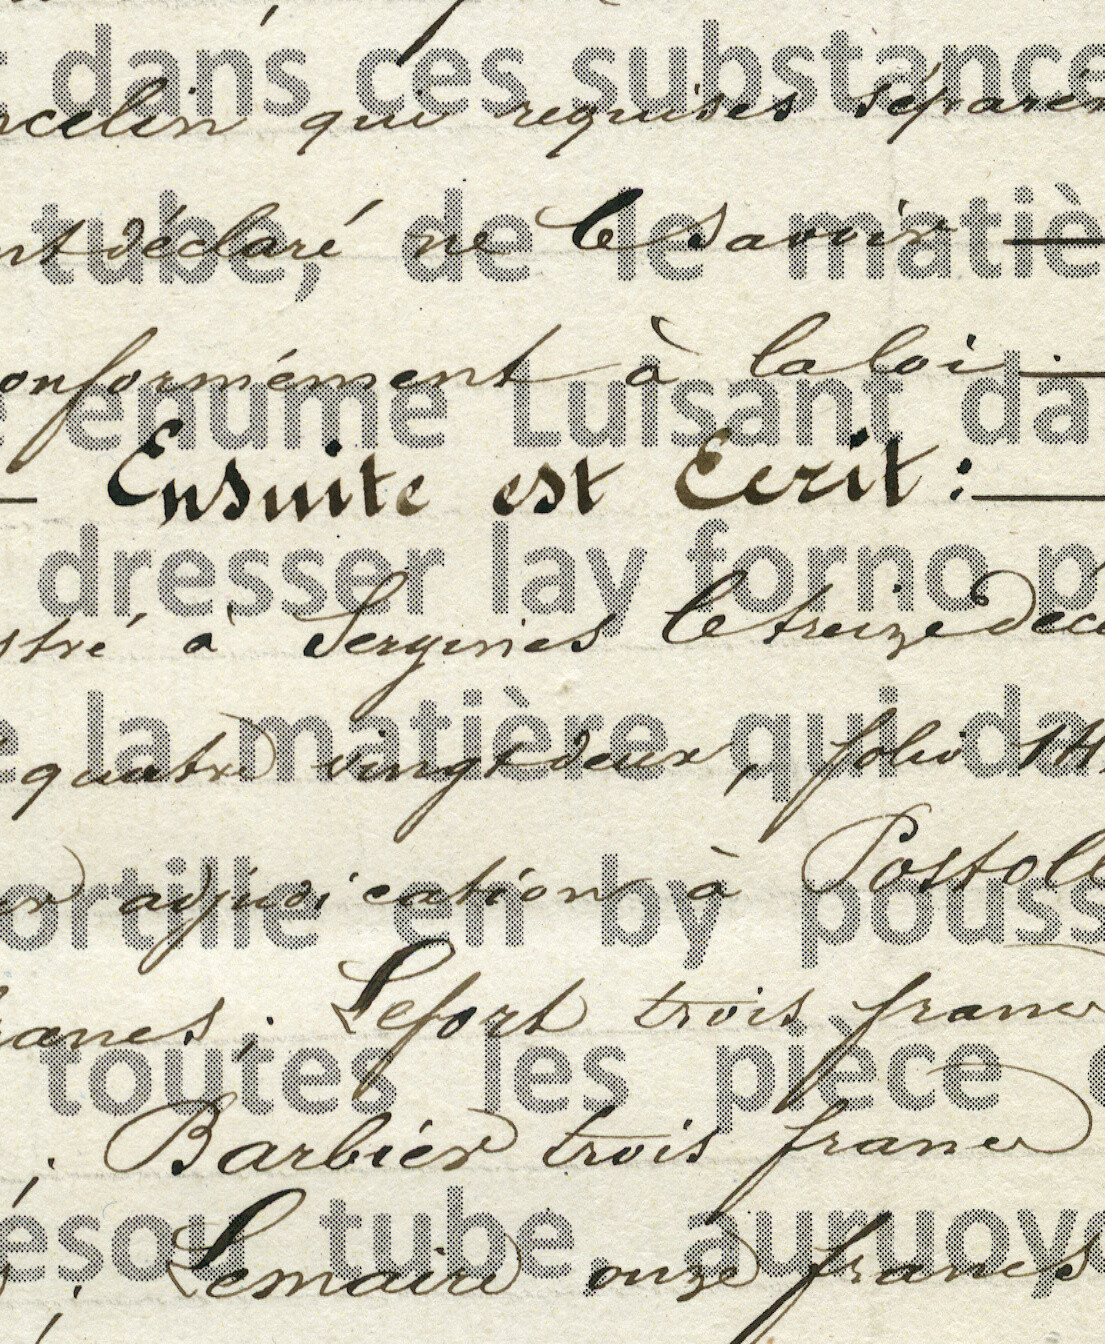 dans ces substance
rcelin qui requises séparém
tube, de le matiè
nt déclaré ne le savoir
onformément à la loi
enume Luisant da
Ensuite est Ecrit :
dresser lay forno p
stré à Sergines le treize déce
la matière qui da
quatre vingt deux, folio 14
ortille en by pouss
adjudication à Postole
rancs ; Lefort trois franc
toutes les pièce
; Barbier trois franc
ésou tube auruoyo
; Lemaire onze francs